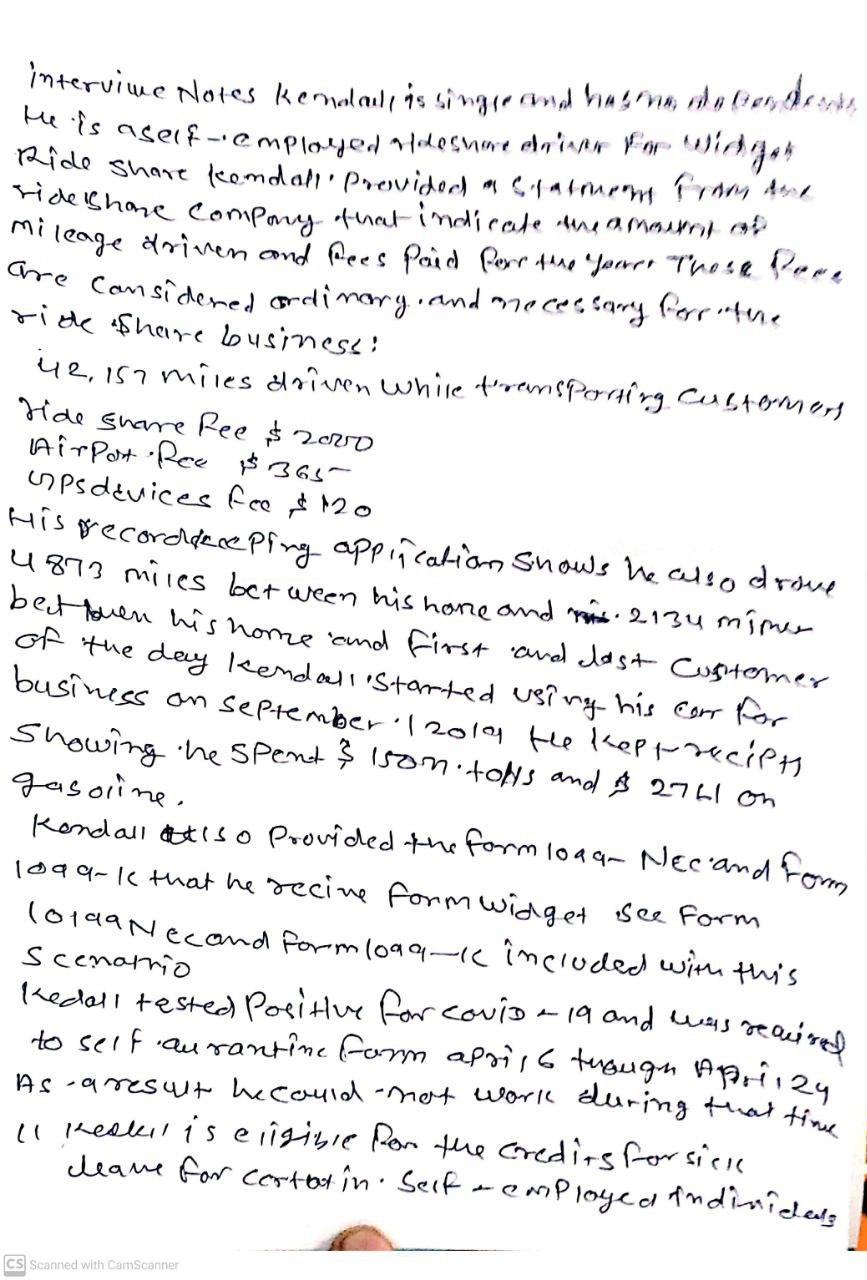 interviwe Notes Kendall is single and has no dependents
He is aself-employed rideshare driver For Widget
Ride share kendall provided a Statment from the
rideshare company that indicate the amount of
mileage driven and fees paid forr the year Those fees
are considered ordinary and necessary forr the
ride share business:
42,157 miles driven while transporting customers
ride share fee $ 2000
AirPort fee $ 365
GPsdevices fee $ 120
His recordkeeping application shows he also drove
4873 miles between his home and 2134 miles
between his home and first and last customer
of the day kendall started using his carr for
business on september 1 2019 He kept recipts
showing he spent $ tolls and $ on
gasoline.
Kendall also provided the form 1099- Nec and form
1099-K that he recive form widget see form
10199Necand form 1099-K included with this
scenatrio
Kedall tested Positive for covid-19 and was required
to self quarantine form april 6 through April 24
AS a result he could not work during that time
is eligible for the credits for sick
leave for certain self-employed indiniduals
CS Scanned with CamScanner